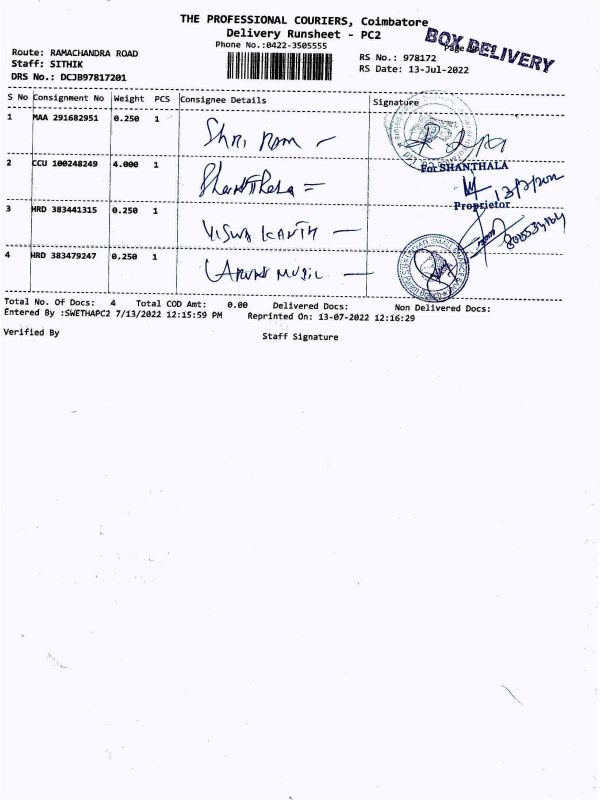 THE PROFESSIONAL COURIERS, Coimbatore
Delivery Runsheet - PC2
Phone No.:0422-3505555
BOX DELIVERY
Route: RAMACHANDRA ROAD
Staff: SITHIK
DRS No.: DCJB97817201
RS No.: 978172
RS Date: 13-Jul-2022
S No Consignment No Weight PCS Consignee Details Signature
1 MAA 291682951 0.250 1 Shri Ram
2 CCU 100248249 4.000 1 Shanthala
For SHANTHALA
13/7/2022
Proprietor
3 HRD 383441315 0.250 1 Viswa Kanth
4 HRD 383479247 0.250 1 Music
Total No. Of Docs: 4 Total COD Amt: 0.00 Delivered Docs: Non Delivered Docs:
Entered By :SWETHAPC2 7/13/2022 12:15:59 PM Reprinted On: 13-07-2022 12:16:29
Verified By Staff Signature